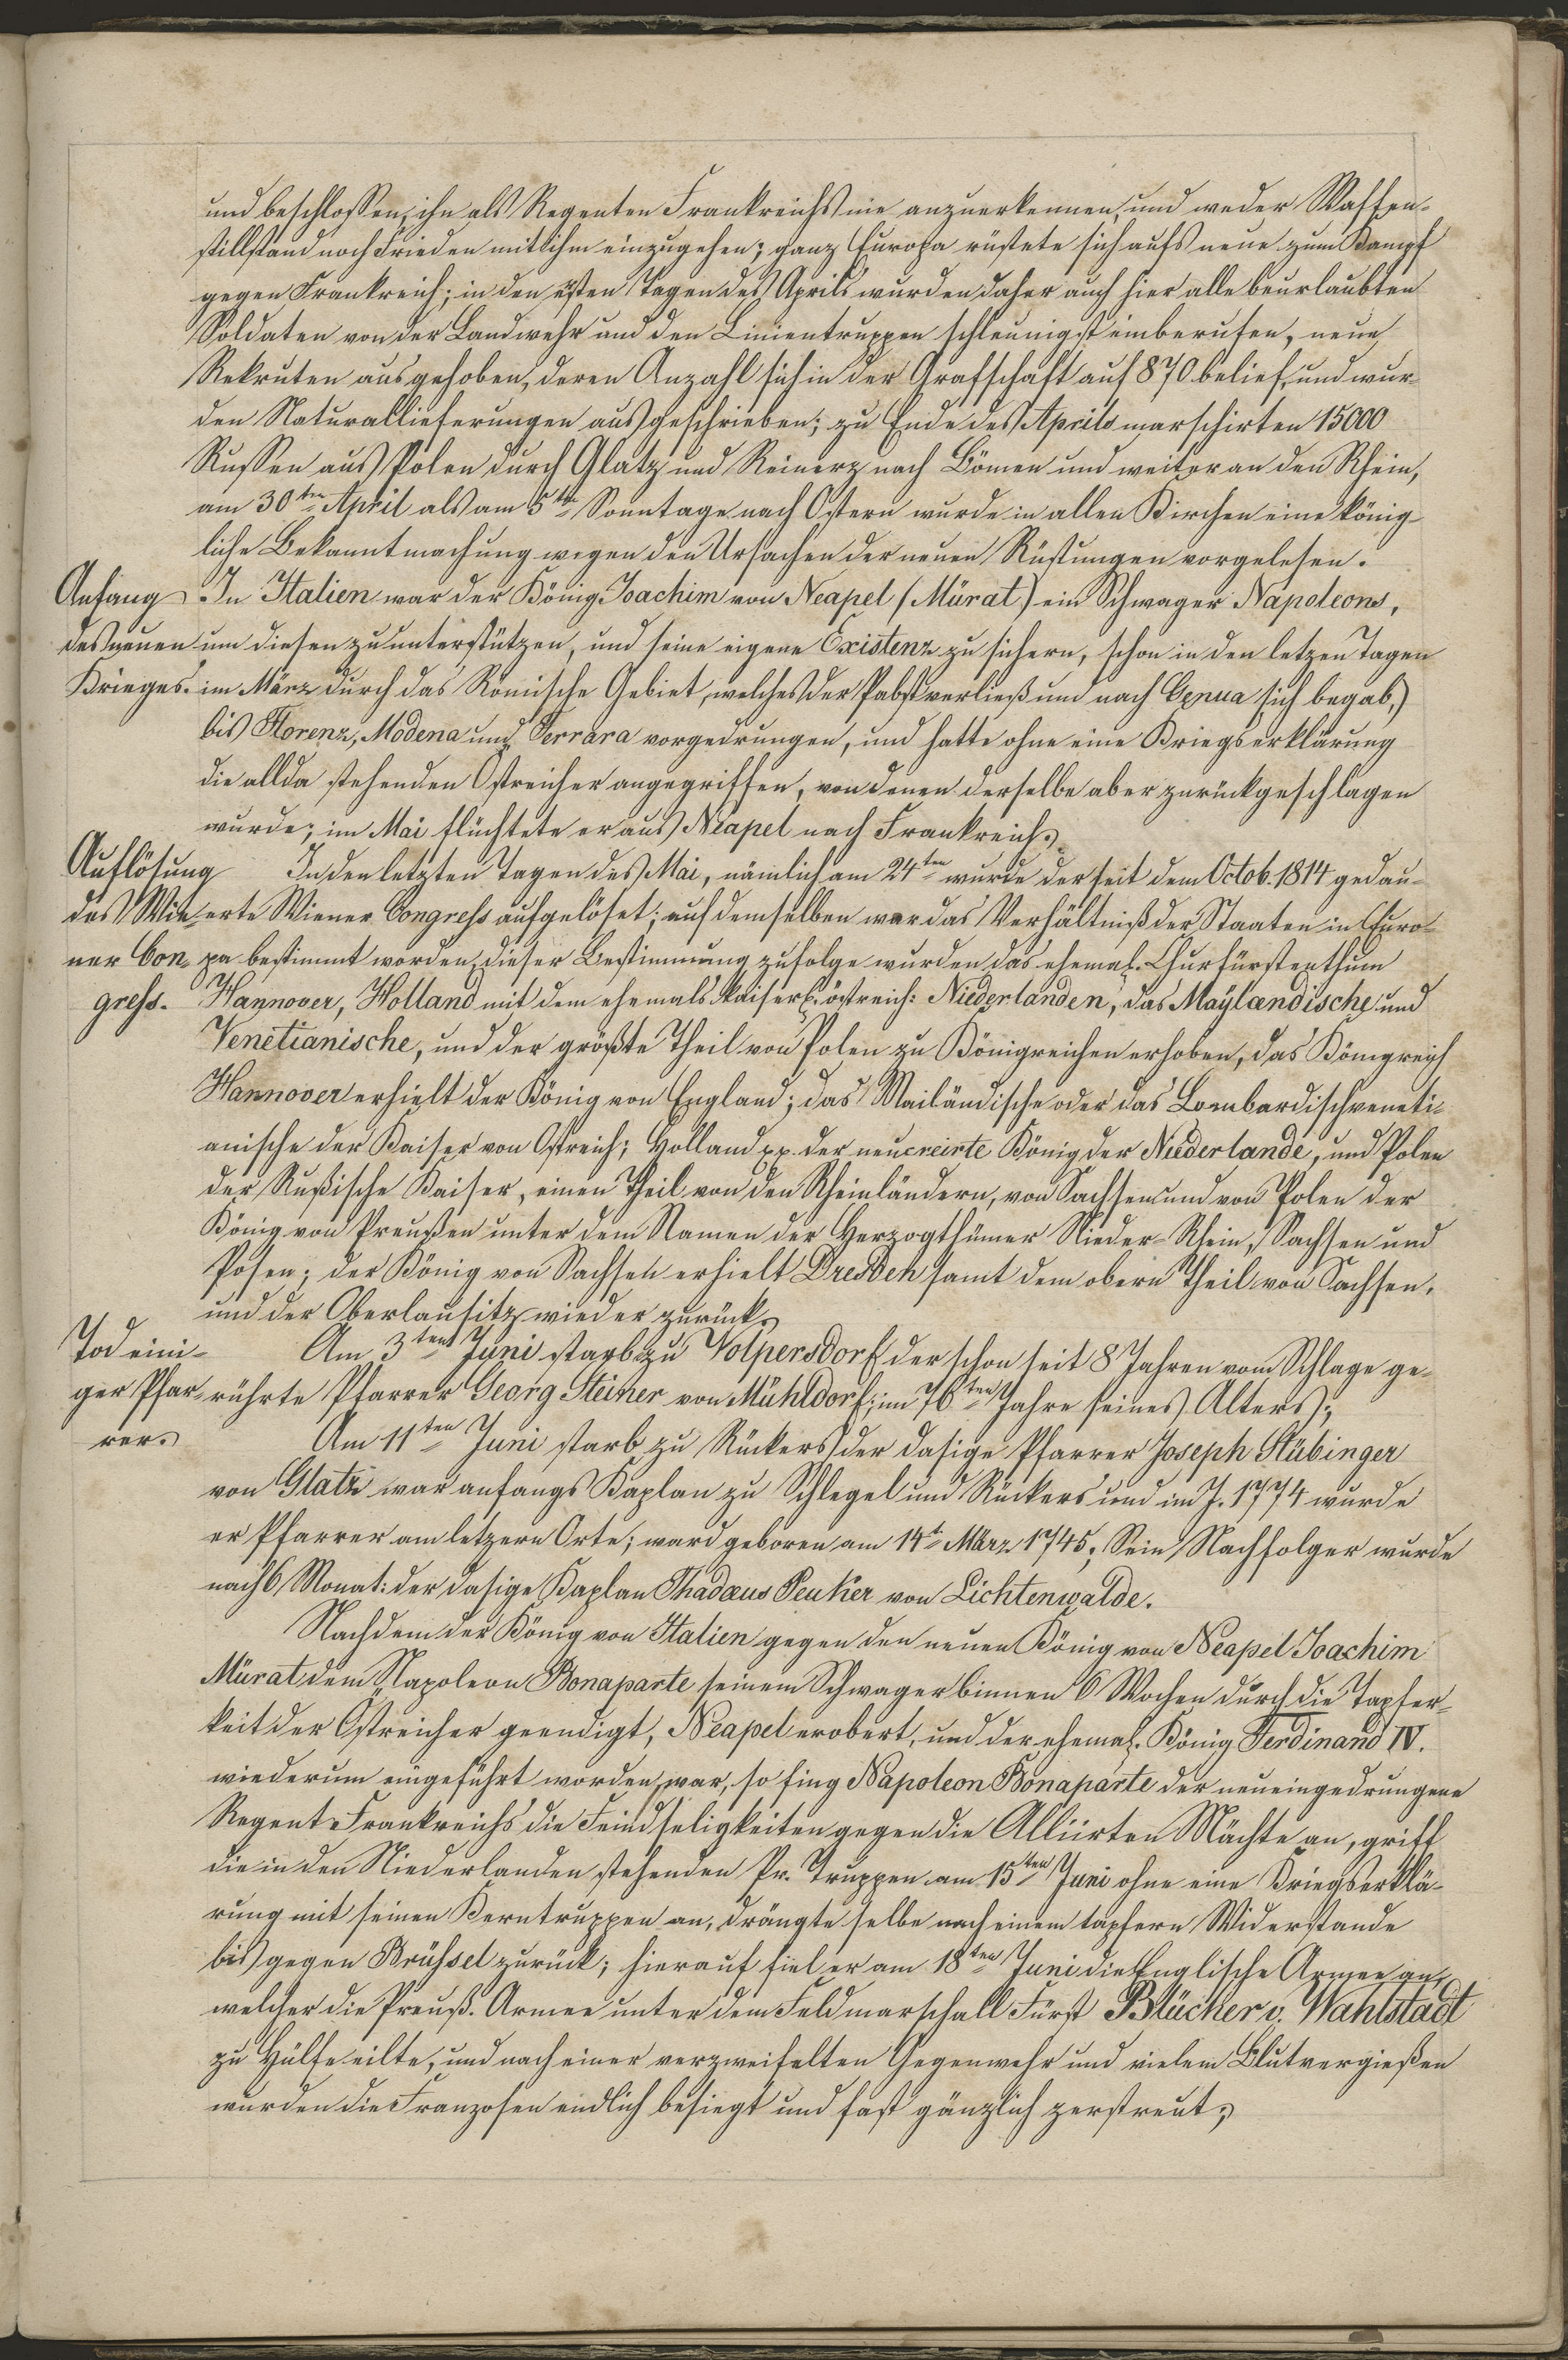 und beschloßen, ihn als Regenten Frankreichs nie anzuerkennen, und weder Waffen-
stillstand noch Frieden mit ihm einzugehen; ganz Europa rüstete sich aufs neue zum Kampf
gegen Frankreich; in den ersten Tagen des Aprils wurden daher auch hier alle beurlaubten
Soldaten von der Landwehr und den Linientruppen schleunigst einberufen, neue
Rekruten ausgehoben, deren Anzahl sich in der Grafschaft auf 870 belief, und wur-
den Naturallieferungen ausgeschrieben; zu Ende des Aprils marschirten 15000
Rußen aus Polen durch Glatz und Reinerz nach Bömen und weiter an den Rhein,
am 30ten April als am 5te Sonntage nach Ostern wurde in allen Kirchen eine könig-
liche Bekanntmachung wegen den Ursachen der neuen Rüstungen vorgelesen.
Anfang In Italien war der König Joachim von Neapel (Mürat) ein Schwager Napoleons,
des neuen um diesen zu unterstützen, und seine eigene Existenz zu sichern, schon in den letzen Tagen
Krieges. im März durch das Römische Gebiet, welches der Pabst verließ und nach Genua sich begab,)
bis Florenz, Modena und Ferrara vorgedrungen, und hatte ohne eine Kriegserklärung
die allda stehenden Östreicher angegriffen, von denen derselbe aber zurückgeschlagen
wurde; im Mai flüchtete er aus Neapel nach Frankreich.
Auflösung In den letzten Tagen des Mai, nämlich am 24ten wurde der seit dem Octob. 1814 gedau-
des Wie- erte Wiener Congreß aufgelöset; auf demselben war das Verhältniß der Staaten in Euro-
ner Con- pa bestimmt worden, dieser Bestimmung zufolge wurden das ehemal. Churfürstenthum
greß. Hannover, Holland mit dem ehemals Kaiserl. östreich: Niederlanden, das Maylændische und
Venetianische, und der größte Theil von Polen zu Königreichen erhoben, das Königreich
Hannover erhielt der König von England; das Mailändische oder das Lombardischveneti-
anische der Kaiser von Östreich; Holland pp. der neucreirte König der Niederlande, und Polen
der Rußische Kaiser, einen Theil von den Rheinländern, von Sachsen und von Polen der
König von Preußen unter dem Namen der Herzogthümer Nieder-Rhein, Sachsen und
Posen; der König von Sachsen erhielt Dresden samt dem obern Theil von Sachsen,
und der Oberlausitz wieder zurück.
Tod eini- Am 3ten Juni starb zu Volpersdorf der schon seit 8 Jahren vom Schlage ge-
ger Pfar- rührte Pfarrer Georg Steiner von Mühldorf; im 76ten Jahre seines Alters;
rer. Am 11ten Juni starb zu Rückers der dasige Pfarrer Joseph Stübinger
von Glatz war anfangs Kaplan zu Schlegel und Rückers und im J. 1774 wurde
er Pfarrer am letzern Orte; ward geboren am 14t März 1745; Sein Nachfolger wurde
nach 6 Monat: der dasige Kaplan Thadæus Peuker von Lichtenwalde.
Nachdem der König von Italien gegen den neuen König von Neapel Joachim
Mürat dem Napoleon Bonaparte seinem Schwager binnen 6 Wochen durch die Tapfer-
keit der Östreicher geendigt, Neapel erobert, und der ehemal. König Ferdinand IV.
wiederum eingeführt worden war, so fing Napoleon Bonaparte der neueingedrungene
Regent Frankreichs die Feindseligkeiten gegen die Alliirten Mächte an, griff
die in den Niederlanden stehenden Pr. Truppen am 15ten Juni ohne eine Kriegserklä-
rung mit seinen Kerntruppen an, drängte selbe nach einem tapfern Widerstande
bis gegen Brüßel zurück; hierauf fiel er am 18ten Juni die Englische Armee an,
welcher die Preuß. Armee unter dem Feldmarschall Fürst Blücher v. Wahlstadt
zu Hülfe eilte, und nach einer verzweifelten Gegenwehr und vielem Blutvergießen
wurden die Franzosen endlich besiegt und fast gänzlich zerstreut;